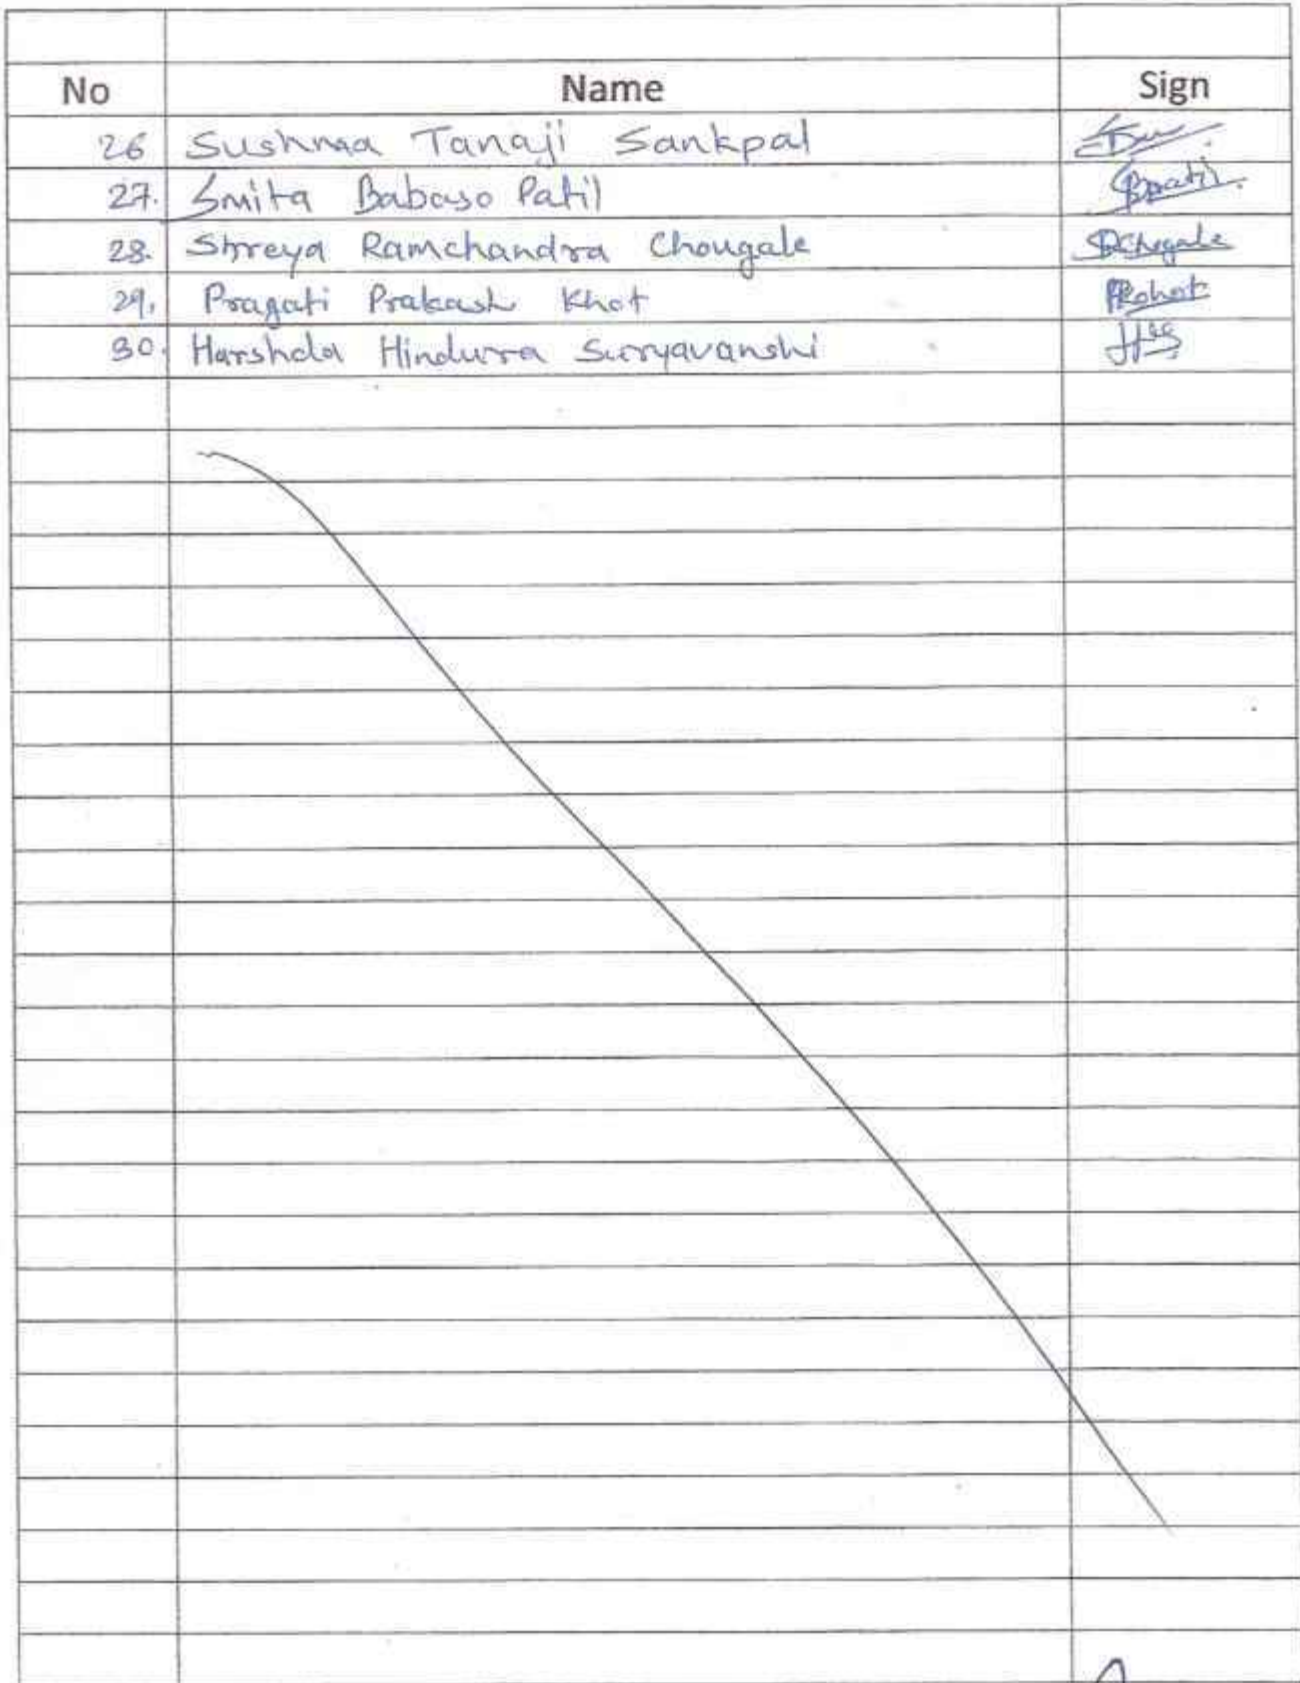 No Name Sign
26 Sushma Tanaji Sankpal
27. Smita Babaso Patil Bpatil.
28. Shreya Ramchandra Chougale
29. Pragati Prakash Khot
30. Harshda Hindurra Suryavanshi